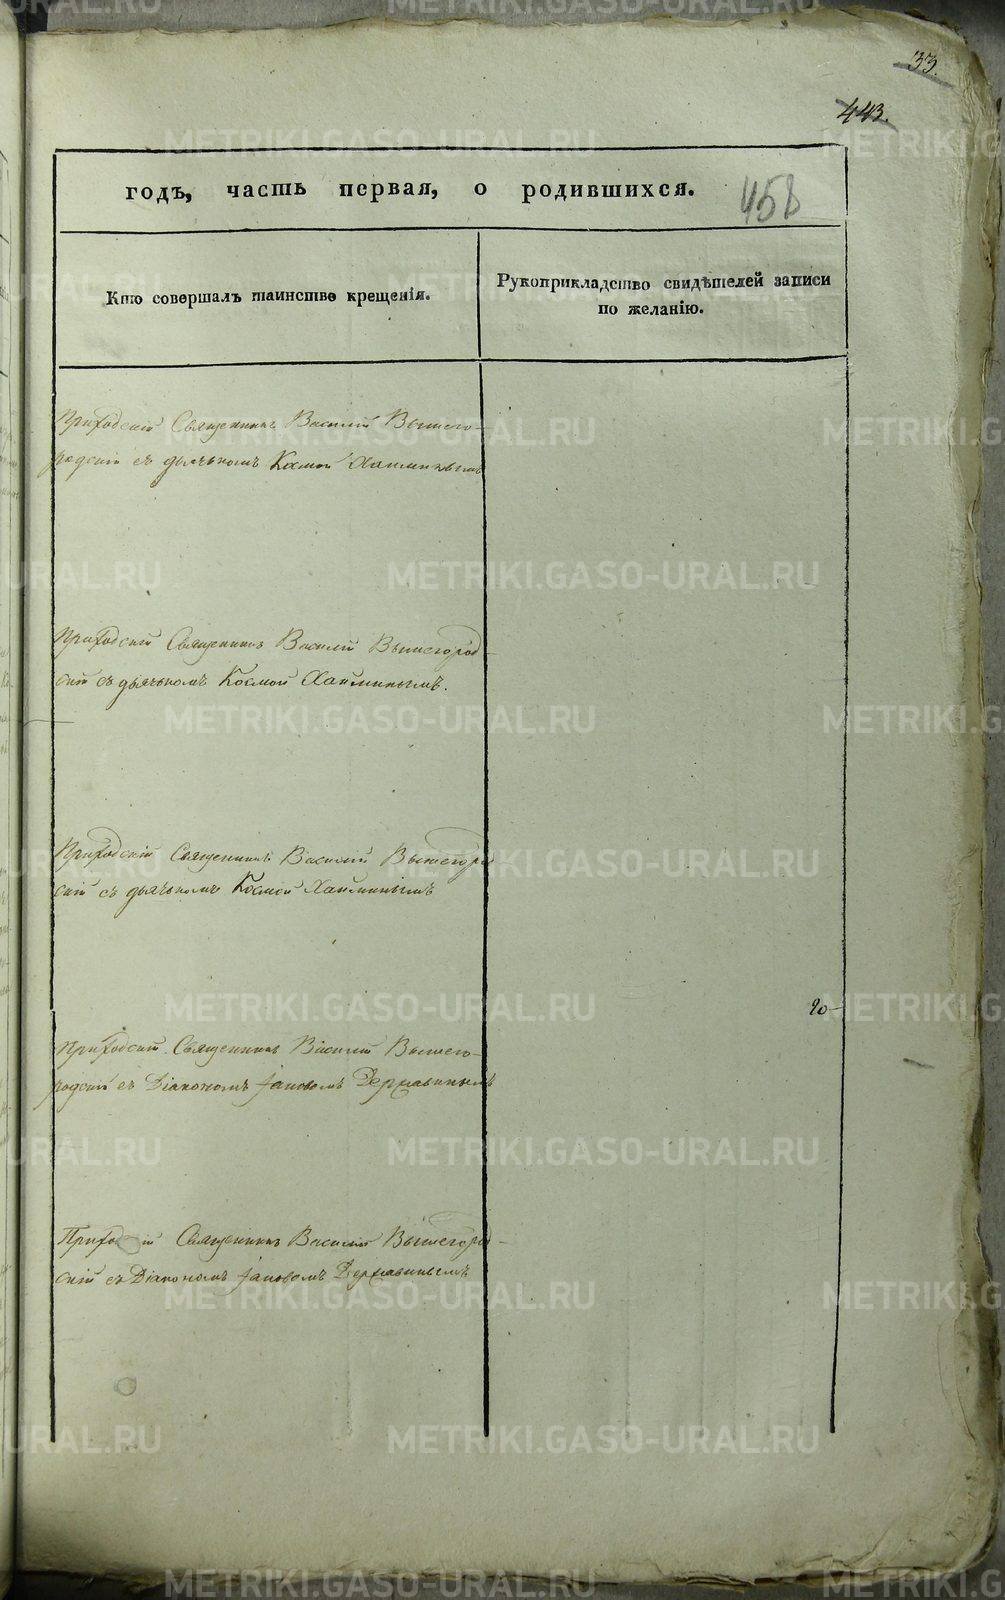 33.
443.
годъ, часть первая, о родившихся.
458
Кто совершалъ таинство крещенія.
Рукоприкладство свидѣтелей записи
по желанію.
Приходскій Священникъ Василій Вышего-
родскій съ дьячькомъ Космой Хайминымъ
Приходскій Священникъ Василій Вышегород-
скій съ дьячькомъ Космой Хайминымъ.
Приходскій Священникъ Василій Вышегород
скій съ дьячькомъ Космой Хайминымъ
20
Приходскій Священникъ Василій Вышего-
родскій съ Діакономъ Іаковомъ Державинымъ
Приходскій Священникъ Василій Вышегород-
скій съ Діакономъ Іаковомъ Державинымъ
METRIKI.GASO-URAL.RU